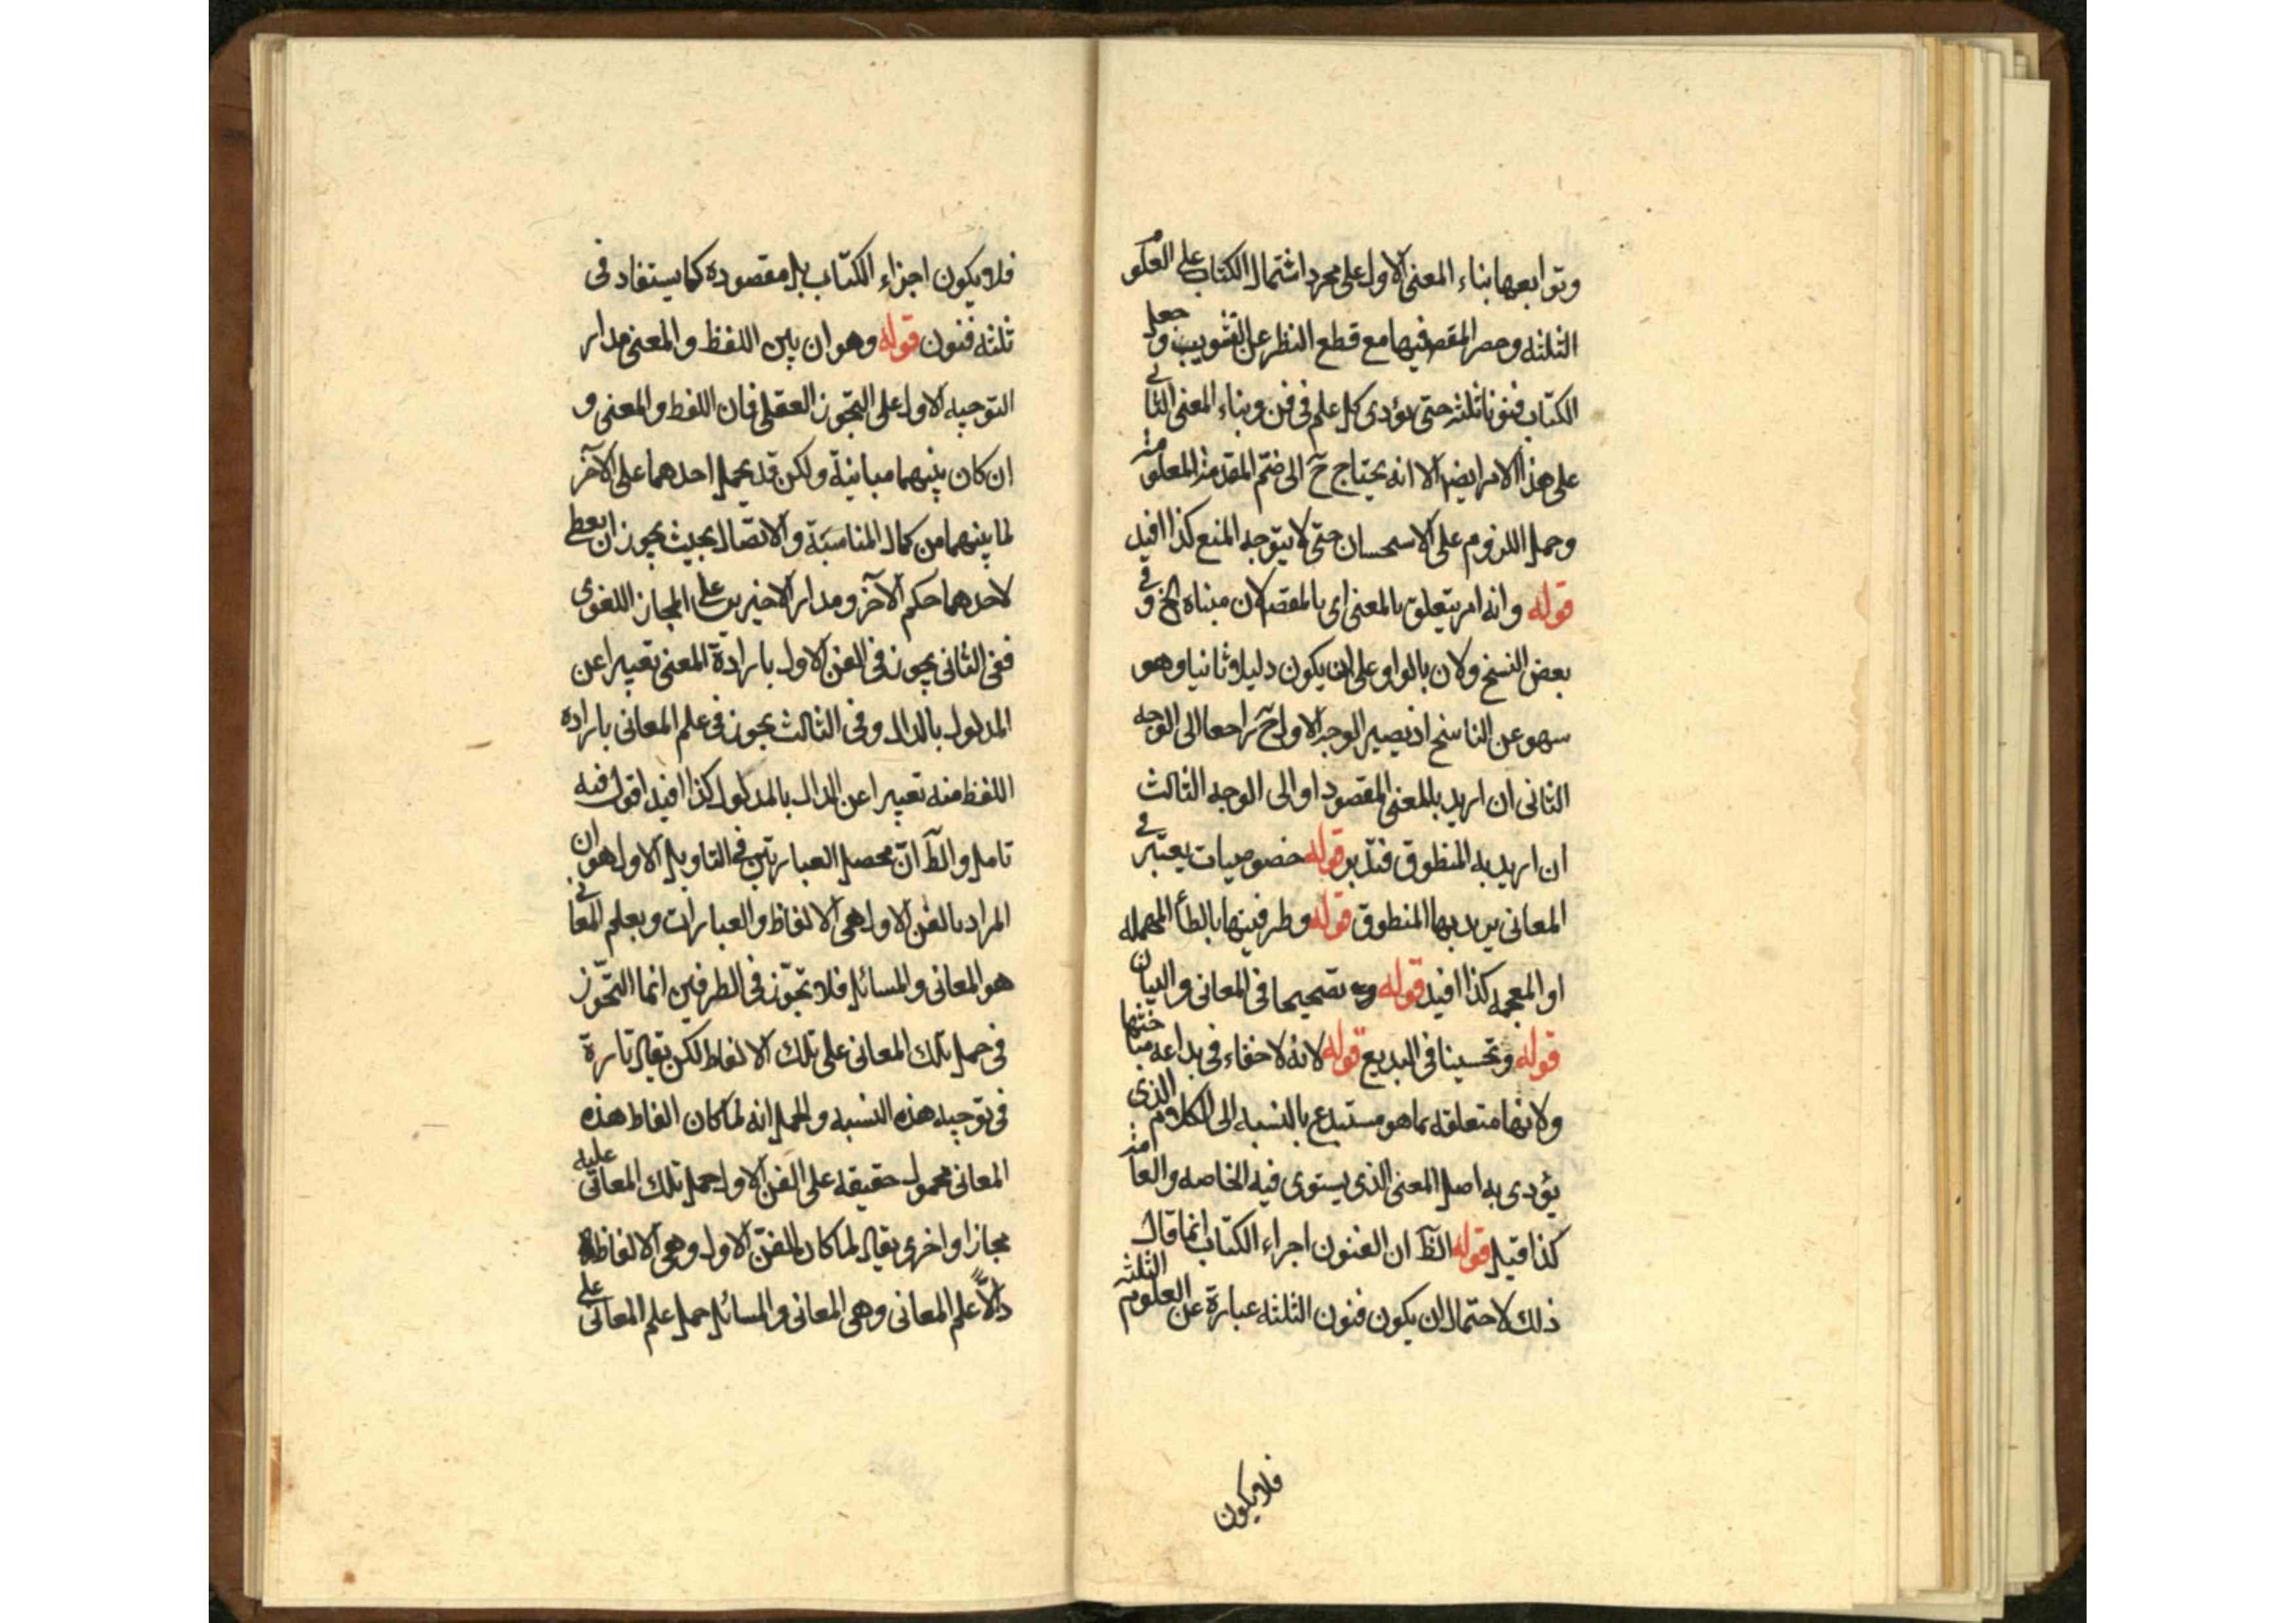 وتوابعها بناء المعنى الاول على مجرد اشتمال الكتاب على العلوم
الثلثه وحصر المقصر فيها مع قطع النظر عن التشويب وجعل
الكتاب فنونا ثلثه حتى يؤدى كل علم فى فن وبناء المعنى الثانى
على هذا الامر ايضا الا انه يحتاج ح الى ضم المقدمة المعلومة
وحمل اللزوم على الاستحسان حتى لا يتوجه المنع كذا افيد
قوله وانه امر يتعلق بالمعنى اى بالمقصر لان مبناه الخ وفى
بعض النسخ ولان بالواو على ان يكون دليلا ثانيا وهو
سهو عن الناسخ اذ يصير الوجه الاول ح راجعا الى الوجه
الثانى ان اريد بالمعنى المقصود او الى الوجه الثالث
ان اريد به المنطوق فتدبر قوله خصوصيات يعتبر فى
المعانى يريد بها المنطوق قوله وطرفيتها بالطأ المهمله
او المعجمه كذا افيد قوله وبه تصحيحا فى المعانى والبيان
قوله وتحسينا فى البديع قوله لانه لا خفاء فى بداعه مباحثها
ولانها متعلقه بما هو مستبدع بالنسبه الى الكلام الذى
يؤدى به اصل المعنى الذى يستوى فيه الخاصه والعامه
كذا قيل قوله الظ ان الفنون اجراء الكتاب انما قال
ذلك لاحتمال ان يكون فنون الثلثه عبارة عن العلوم الثلثه
فلا يكون
فلا يكون اجزاء الكتاب بل مقصوده كما يستفاد فى
ثلثه فنون قوله وهو ان بين اللفظ والمعنى مدار
التوجيه الاول على التجوز العقلى فان اللفظ والمعنى و
ان كان بينهما مباينة ولكن قد يحمل احدهما على الآخر
لما بينهما من كمال المناسبة والاتصال بحيث يجوز ان يعطى
لاحدهما حكم الآخر ومدار الاخيرين على المجاز اللغوى
ففى الثانى يجوز فى الفن الاول بارادة المعنى تعبيرا عن
المدلول بالدال وفى الثالث يجوز فى علم المعانى باراده
اللفظ منه تعبيرا عن الدال بالمدلول كذا افيد اقول فيه
تامل والظ ان محصل العبارتين فى التاويل الاول هو ان
المراد بالفن الاول هى الالفاظ والعبارات وبعلم المعانى
هو المعانى والمسائل فلا تجوز فى الطرفين انما التجوز
فى حمل تلك المعانى على تلك الالفاظ لكن يقال تارة
فى توجيه هذه النسبه والحمل انه لما كان الفاظ هذه
المعانى محمول حقيقه على الفن الاول حمل تلك المعانى عليه
مجازا واخرى يقال لما كان الفن الاول وهى الالفاظ
دالا علم المعانى وهى المعانى والمسائل حمل علم المعانى على